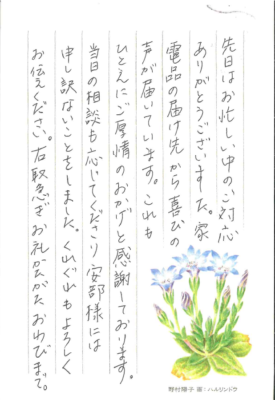 先日はお忙しい中のご対応
ありがとうございました。家
電品の届け先から喜びの
声が届いています。これも
ひとえにご厚情のおかげと感謝しております。
当日の相談も応じてくださり安部様には
申し訳ないことをしました。くれぐれもよろしく
お伝えください。右取急ぎお礼かたがたおわびまで。
野村陽子 画：ハルリンドウ